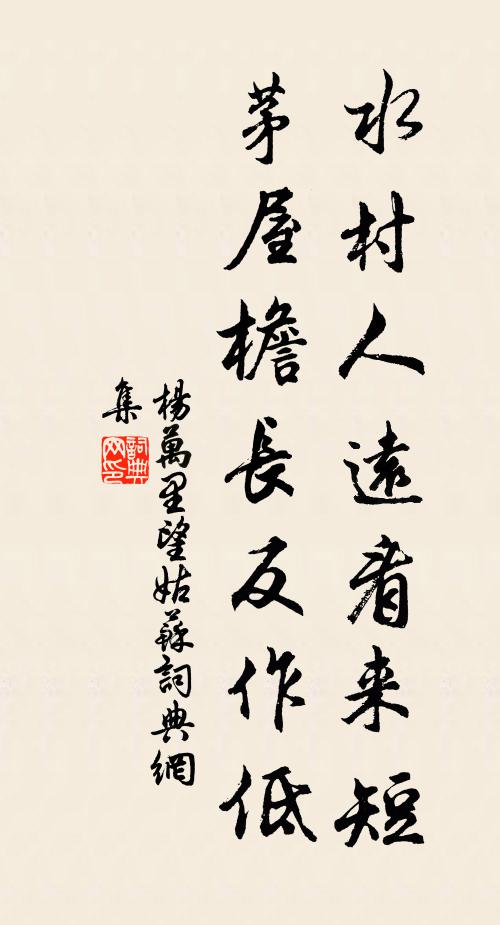 水村人遠看来短
茅屋檐長反作低
楊萬里望姑蘇詞典網
集
詞典
网印